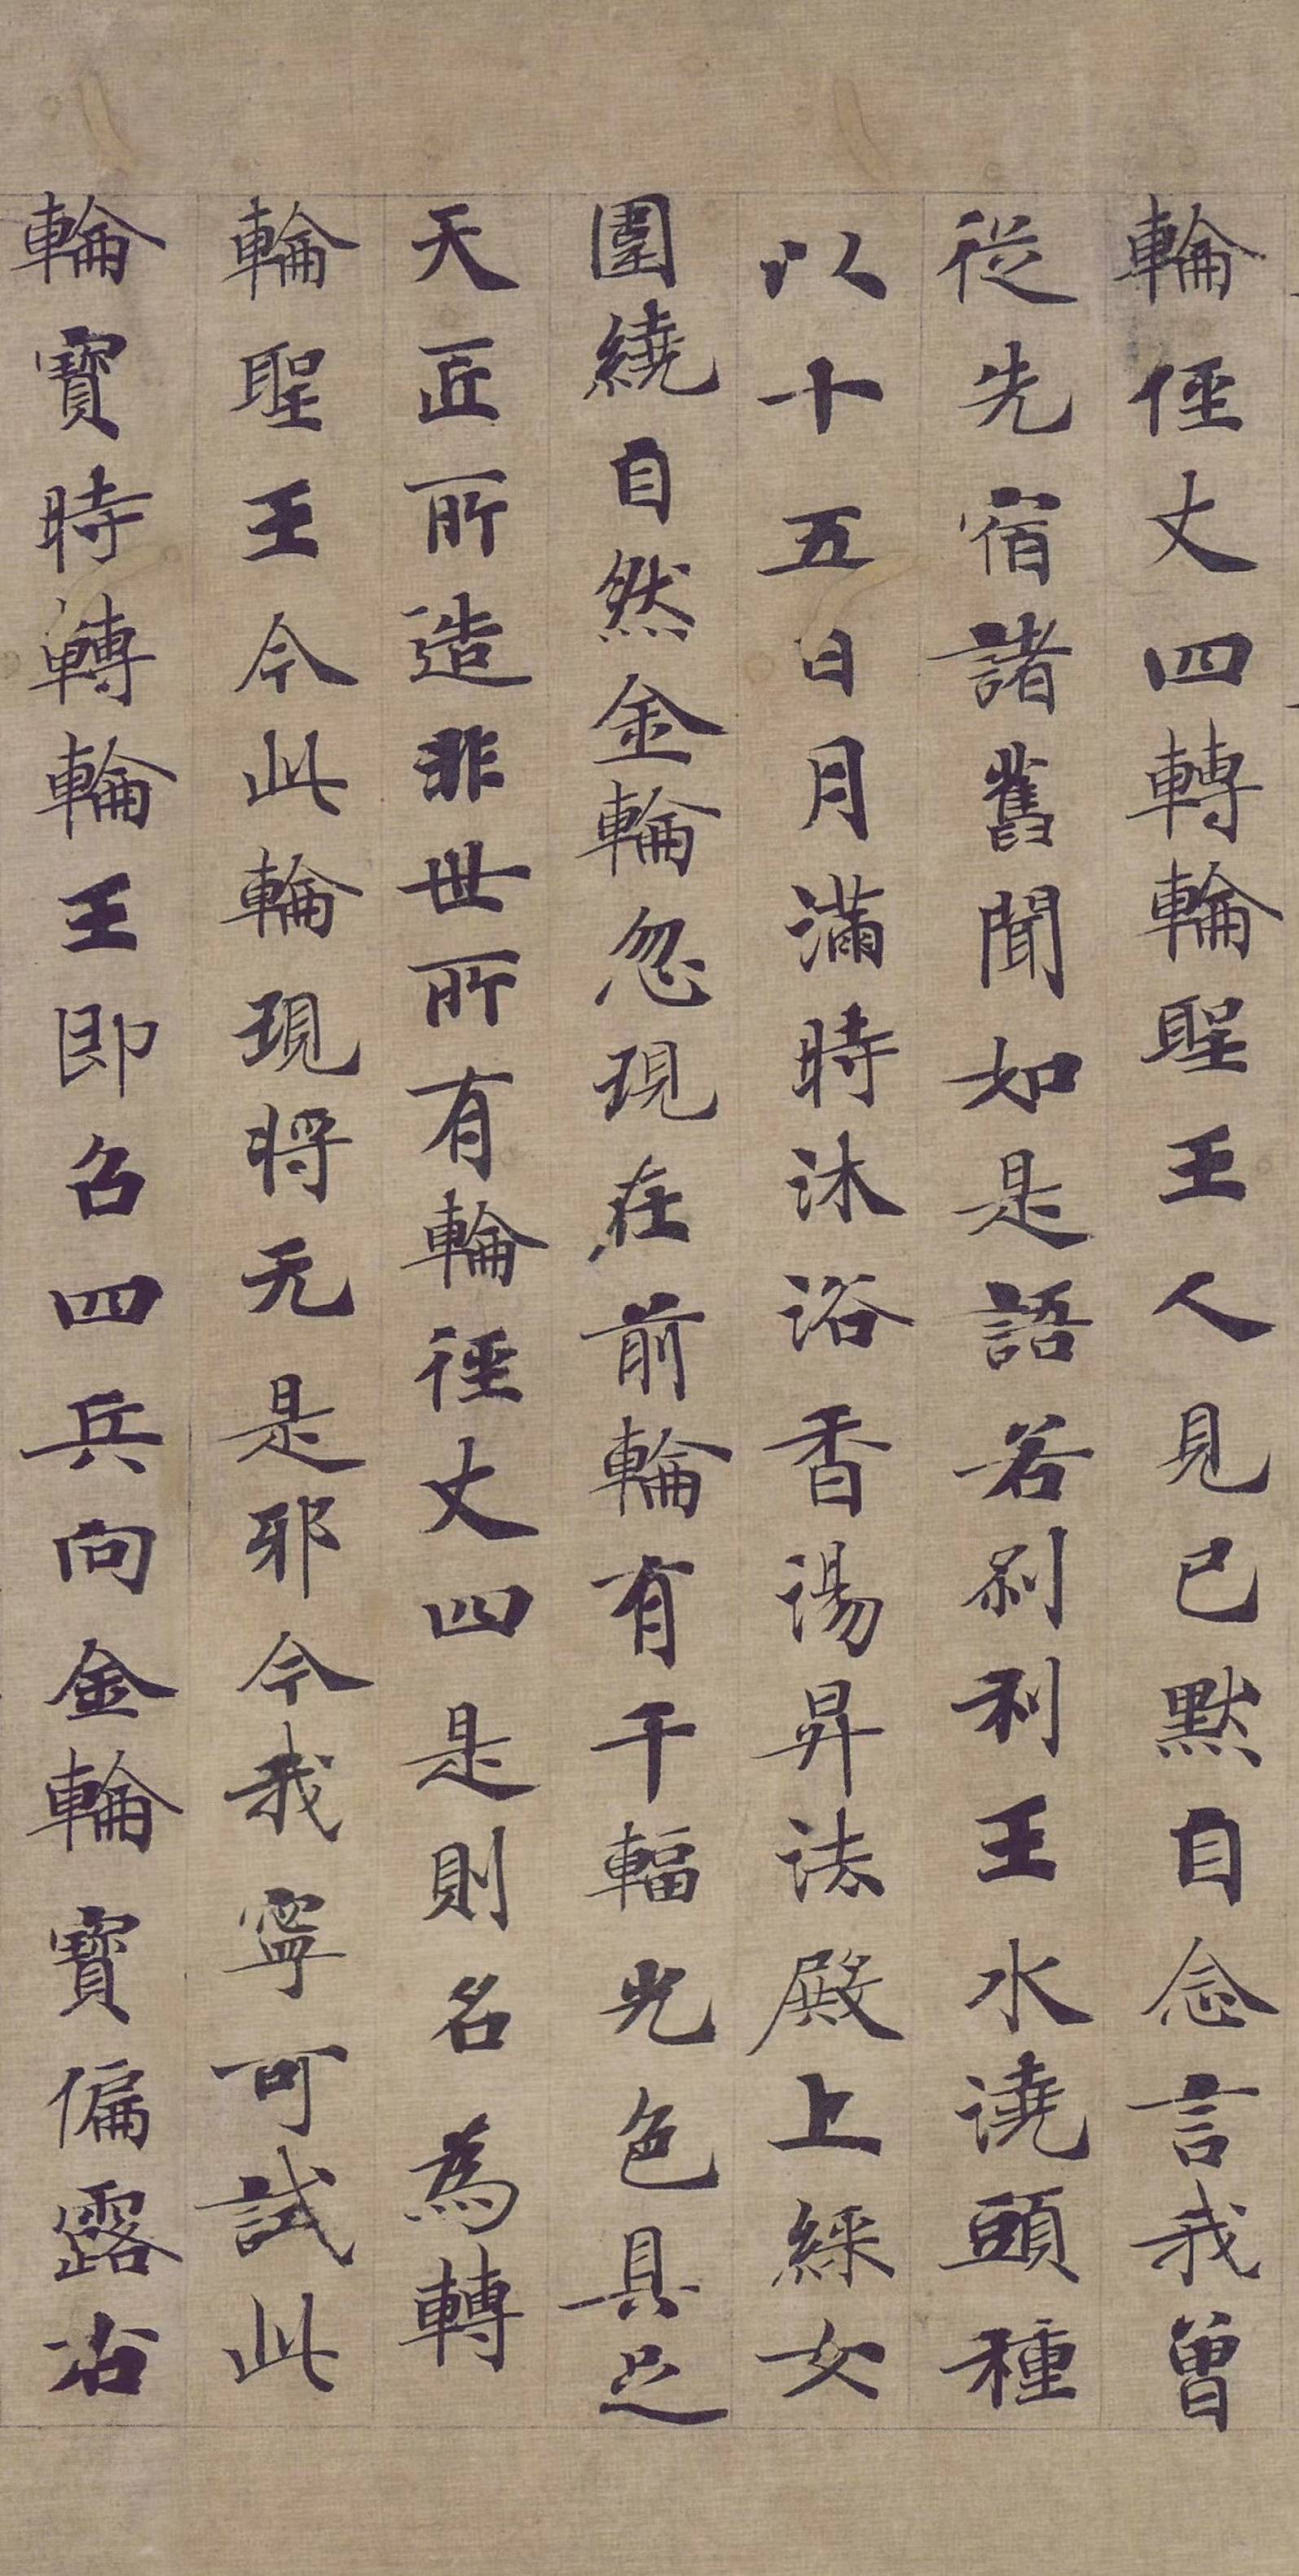 輪俓丈四轉輪聖王王人見已默自念言我曾
從先宿諸舊聞如是語若刹利王水澆頭種
以十五日月滿時沐浴香湯昇法殿上綵女
圍繞自然金輪忽現在前輪有千輻光色具足
天匠所造非世所有輪徑丈四是則名為轉
輪聖王今此輪現將无是耶今我寧可試此
輪寶時轉輪王即召四兵向金輪寶偏露右